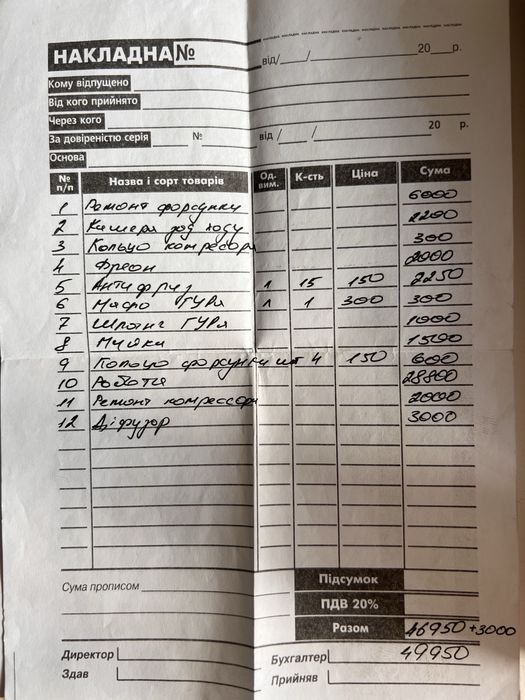 НАКЛАДНА №
від/ / 20 р.
Кому відпущено
Від кого прийнято
Через кого
За довіреністю серія № від / / 20 р.
Основа
№ п/п Назва і сорт товарів Од. вим. К-сть Ціна Сума
1 Ремонт форсунки 6000
2 2200
3 Кольцо компресора 300
4 Фреон 2000
5 Антифриз л 15 150 2250
6 Масло ГУРа л 1 300 300
7 Шланг ГУРа 1000
8 1500
9 Кольцо форсунки шт 4 150 600
10 Робота 28800
11 Ремонт компрессора 2000
12 Діфузор 3000
Сума прописом
Підсумок
ПДВ 20%
Разом 46950+3000
49950
Директор
Бухгалтер
Здав
Прийняв